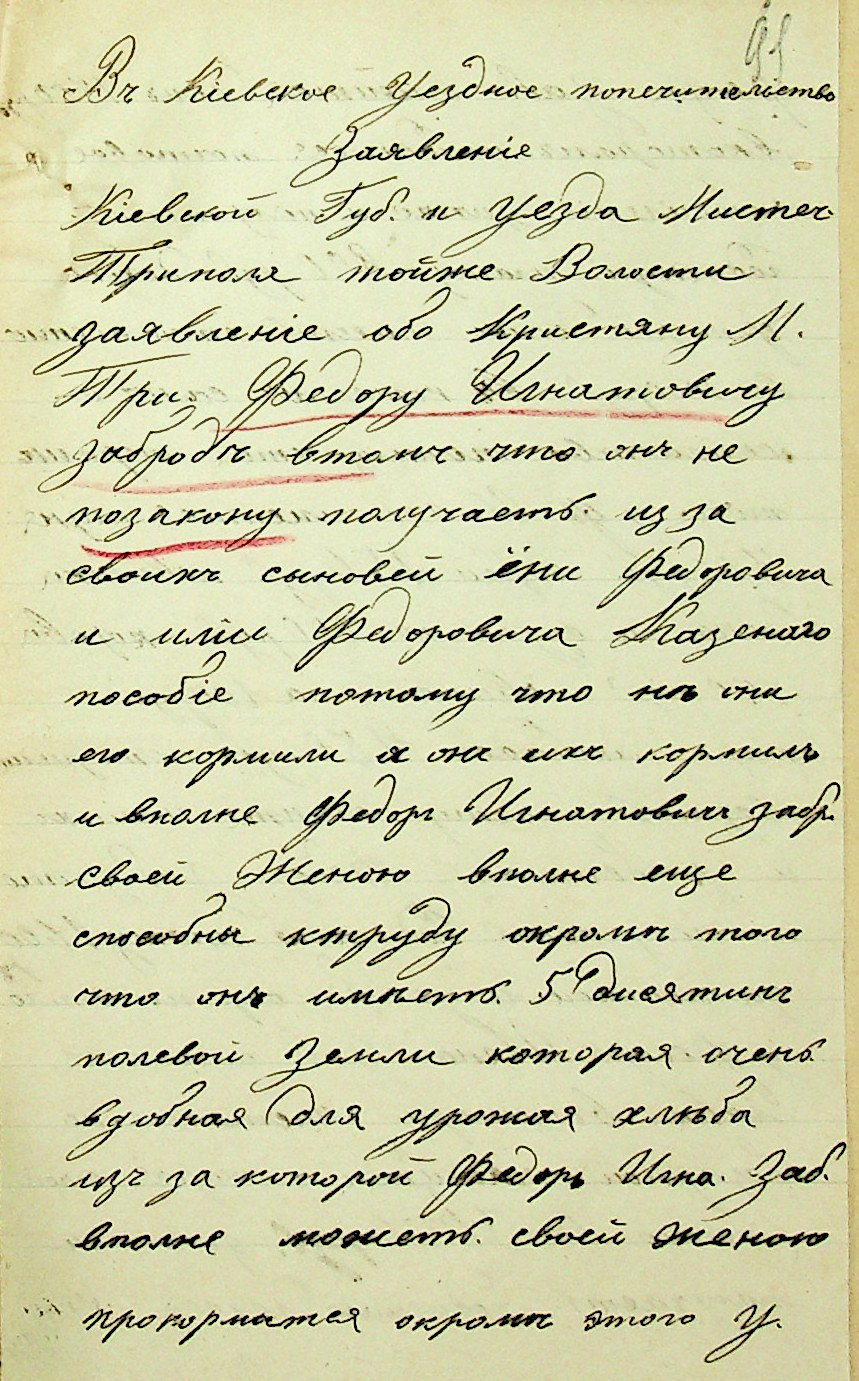 91
Въ Кіевское Уездное попечительство
Заявленіе
Кіевской Губ. и уезда Мистеч.
Триполя тойже Волости
заявленіе обо Кристяну М.
Три. Федору Игнатовичу
забродъ втомъ что онъ не
позакону получаетъ из за
своихъ сыновей Федоровича
и Федоровича Казенаго
пособіе потому что нъ они
его кормили а он ихъ кормилъ
и вполне Федоръ Игнатовичъ забр.
своей Женою вполне еще
способны ктруду окромъ того
что онъ имѣетъ 5 дисятинъ
полевой Земли которая очень
вдобная для урожая хлѣба
изъ за которой Федоръ Игна. Заб.
вполне можетъ своей женою
прокормится окромъ этого У.